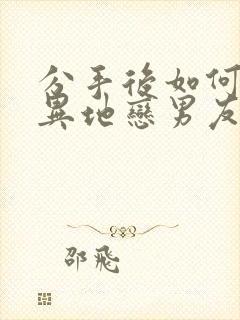 分手後如何
異地戀男友
邵飛